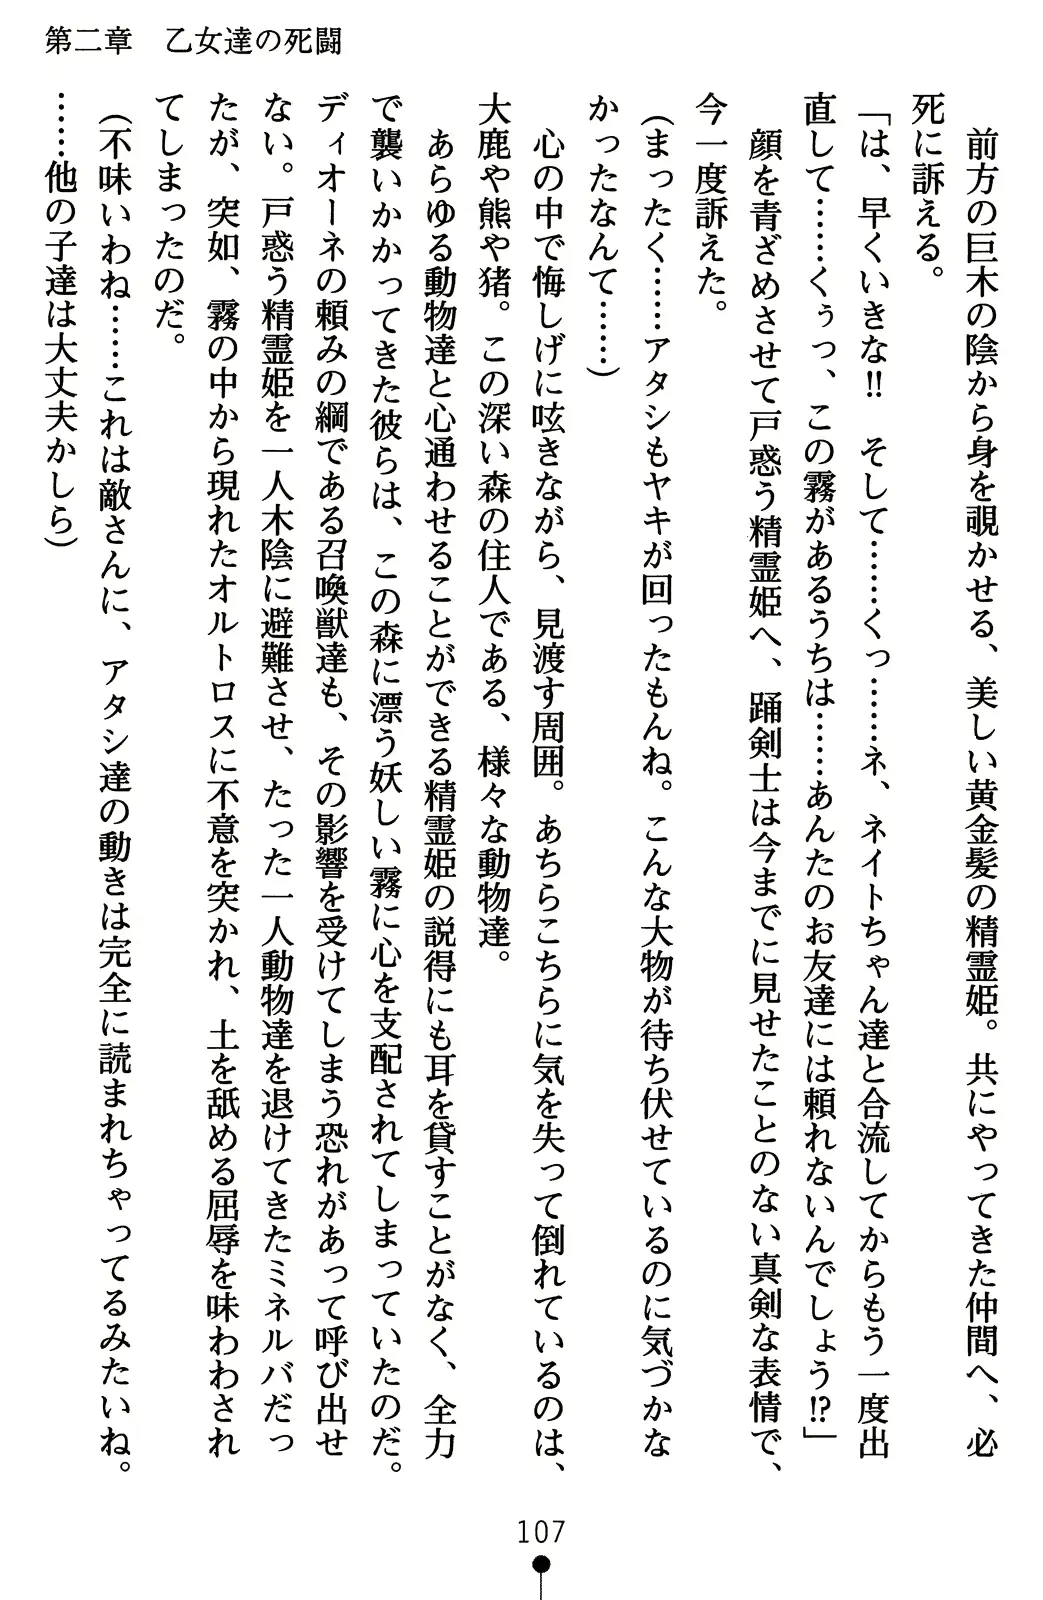 第二章　乙女達の死闘
　前方の巨木の陰から身を覗かせる、美しい黄金髪の精霊姫。共にやってきた仲間へ、必
死に訴える。
「は、早くいきな‼　そして……くっ……ネ、ネイトちゃん達と合流してからもう一度出
直して……くぅっ、この霧があるうちは……あんたのお友達には頼れないんでしょう⁉」
　顔を青ざめさせて戸惑う精霊姫へ、踊剣士は今までに見せたことのない真剣な表情で、
今一度訴えた。
（まったく……アタシもヤキが回ったもんね。こんな大物が待ち伏せているのに気づかな
かったなんて……）
　心の中で悔しげに呟きながら、見渡す周囲。あちらこちらに気を失って倒れているのは、
大鹿や熊や猪。この深い森の住人である、様々な動物達。
　あらゆる動物達と心通わせることができる精霊姫の説得にも耳を貸すことがなく、全力
で襲いかかってきた彼らは、この森に漂う妖しい霧に心を支配されてしまっていたのだ。
ディオーネの頼みの綱である召喚獣達も、その影響を受けてしまう恐れがあって呼び出せ
ない。戸惑う精霊姫を一人木陰に避難させ、たった一人動物達を退けてきたミネルバだっ
たが、突如、霧の中から現れたオルトロスに不意を突かれ、土を舐める屈辱を味わわされ
てしまったのだ。
（不味いわね……これは敵さんに、アタシ達の動きは完全に読まれちゃってるみたいね。
……他の子達は大丈夫かしら）
107